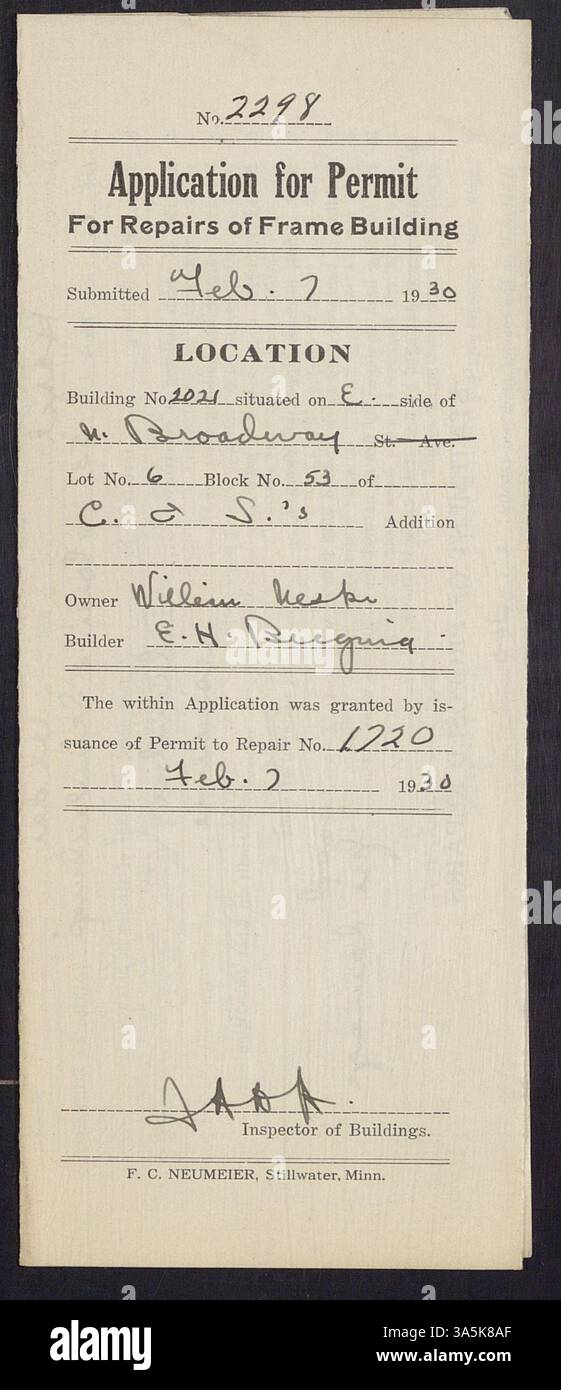 No. 2298
Application for Permit
For Repairs of Frame Building
Submitted Feb. 7 1930
LOCATION
Building No 2021 situated on E. side of
N. Broadway St. Ave.
Lot No. 6 Block No. 53 of
C. & S.'s Addition
Owner
Builder E. H.
The within Application was granted by is-
suance of Permit to Repair No. 1720
Feb. 7 1930
Inspector of Buildings.
F. C. NEUMEIER, Stillwater, Minn.
alamy
Image ID: 3A5K8AF
www.alamy.com